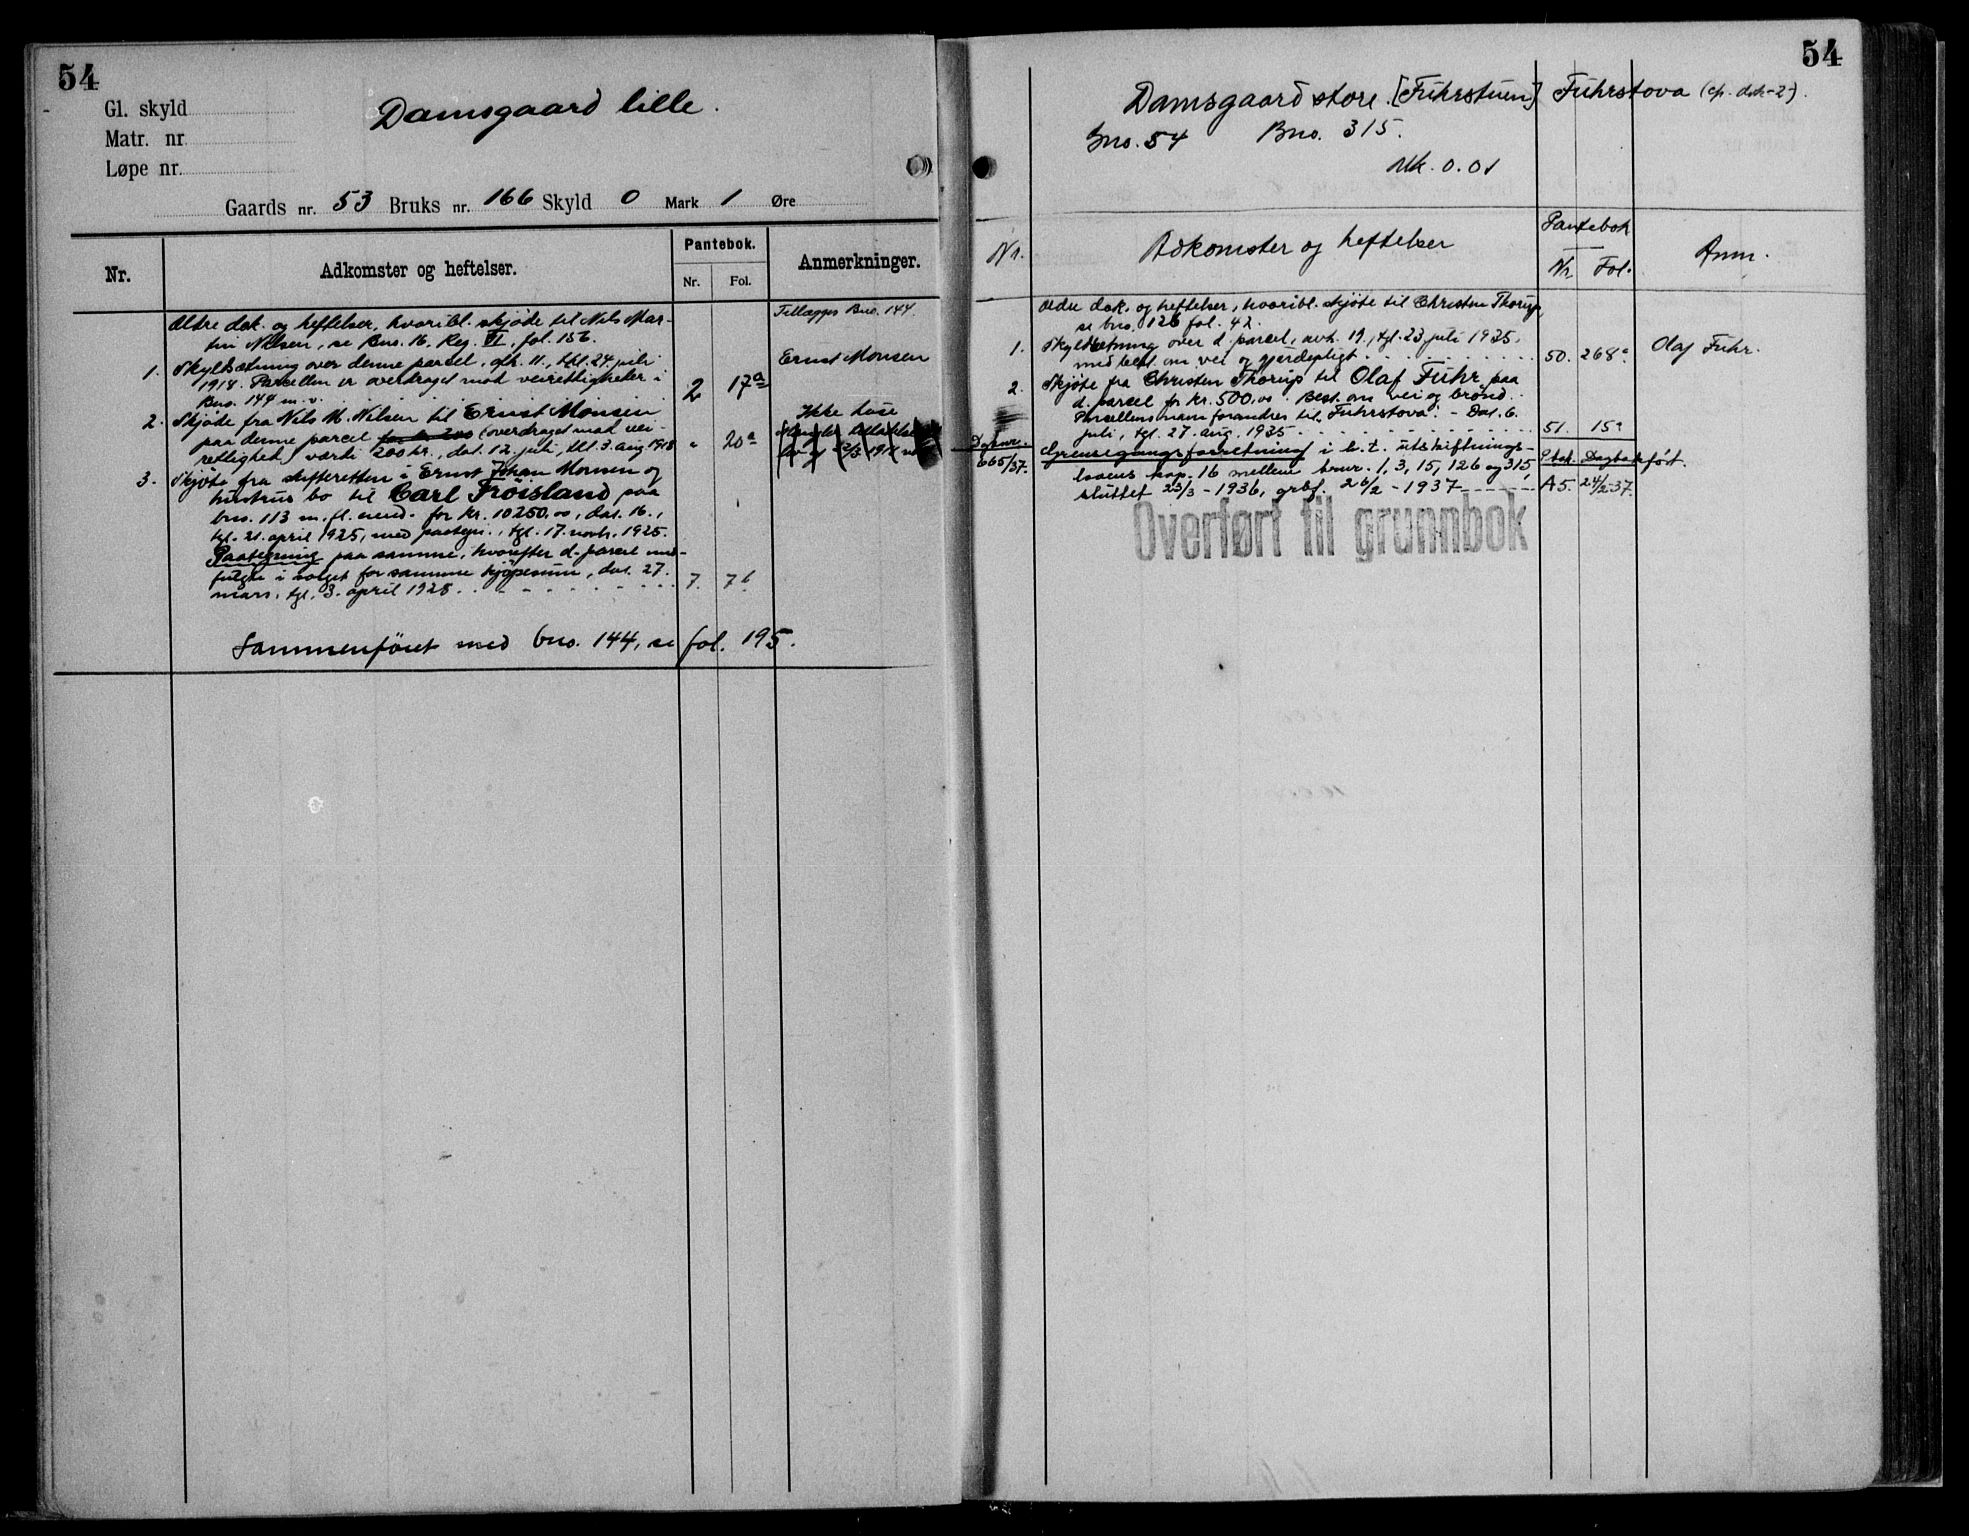 54
Gl. skyld
Matr. nr.
Løpe nr.
Damsgaard lille.
Gaards nr. 53 Bruks nr. 166 Skyld 0 Mark 1 Øre
Nr.
Adkomster og heftelser.
Pantebok.
Nr. Fol.
Anmerkninger.
Ældre dok. og heftelser, hvoribl. skjøde til Nils Mar-
tin Nilsen, se Bno. 16. Reg. VI, fol. 156.
Tillægges Bno. 144.
1. Skyldsætning over denne parcel, afh. 11., tgl. 24. juli
1918. Parcellen er overdraget mod veirettigheder i
Bno. 144 m. v. 2 17a
Ernst Monsen
2. Skjøde fra Nils M. Nilsen til Ernst Monsen
paa denne parcel for kr. 200 (overdraget mod vei-
rettighed) værdi 200 kr., dat. 12. juli, tgl. 3. aug 1918 " 20a
Ikke løse
3. Skjøte fra skifteretten i Ernst Johan Monsen og
hustrus bo til Carl Frøisland paa
bno. 113 m. fl. eiend. for kr. 10250.00, dat. 16.,
tgl. 21. april 1925, med paategn., tgl. 17. novb. 1925.
Paategning paa samme, hvorefter d. parcel med-
følger i salget for samme kjøpesum, dat. 27.
mars, tgl. 3. april 1928. 7. 7b
Sammenføiet med bno. 144, se fol. 195.
54
Damsgaard store. [Fuhrstuen] Fuhrstova (cfr. dok-2-).
Gno. 54 Bno. 315.
Mk. 0.01
Nr.
Adkomster og heftelser
Pantebok
Nr Fol.
Anm.
Ældre dok. og heftelser, hvoribl. skjøte til Christen Thorup,
se bno. 126 fol. 42.
1. Skyldsætning over d. parcel, avh. 19., tgl. 23. juli 1935,
med best. om vei og gjerdepligt 50. 268a
Olaf Fuhr.
2. Skjøte fra Christen Thorup til Olaf Fuhr paa
d. parcel for kr. 500.00. Best. om vei og brønd.
Parcellens navn forandres til "Fuhrstova". - Dat. 6.
juli, tgl. 27. aug. 1935 51. 15a
Dagb.nr.
665/37.
Grensegangsforretning i h. t. utskiftnings-
lovens kap. 16 mellem brnr. 1, 3, 15, 126 og 315,
sluttet 23/3 - 1936, grbf. 26/2 - 1937
P.bok. Dagbokført.
A5. 24/2-37.
Overført til grunnbok